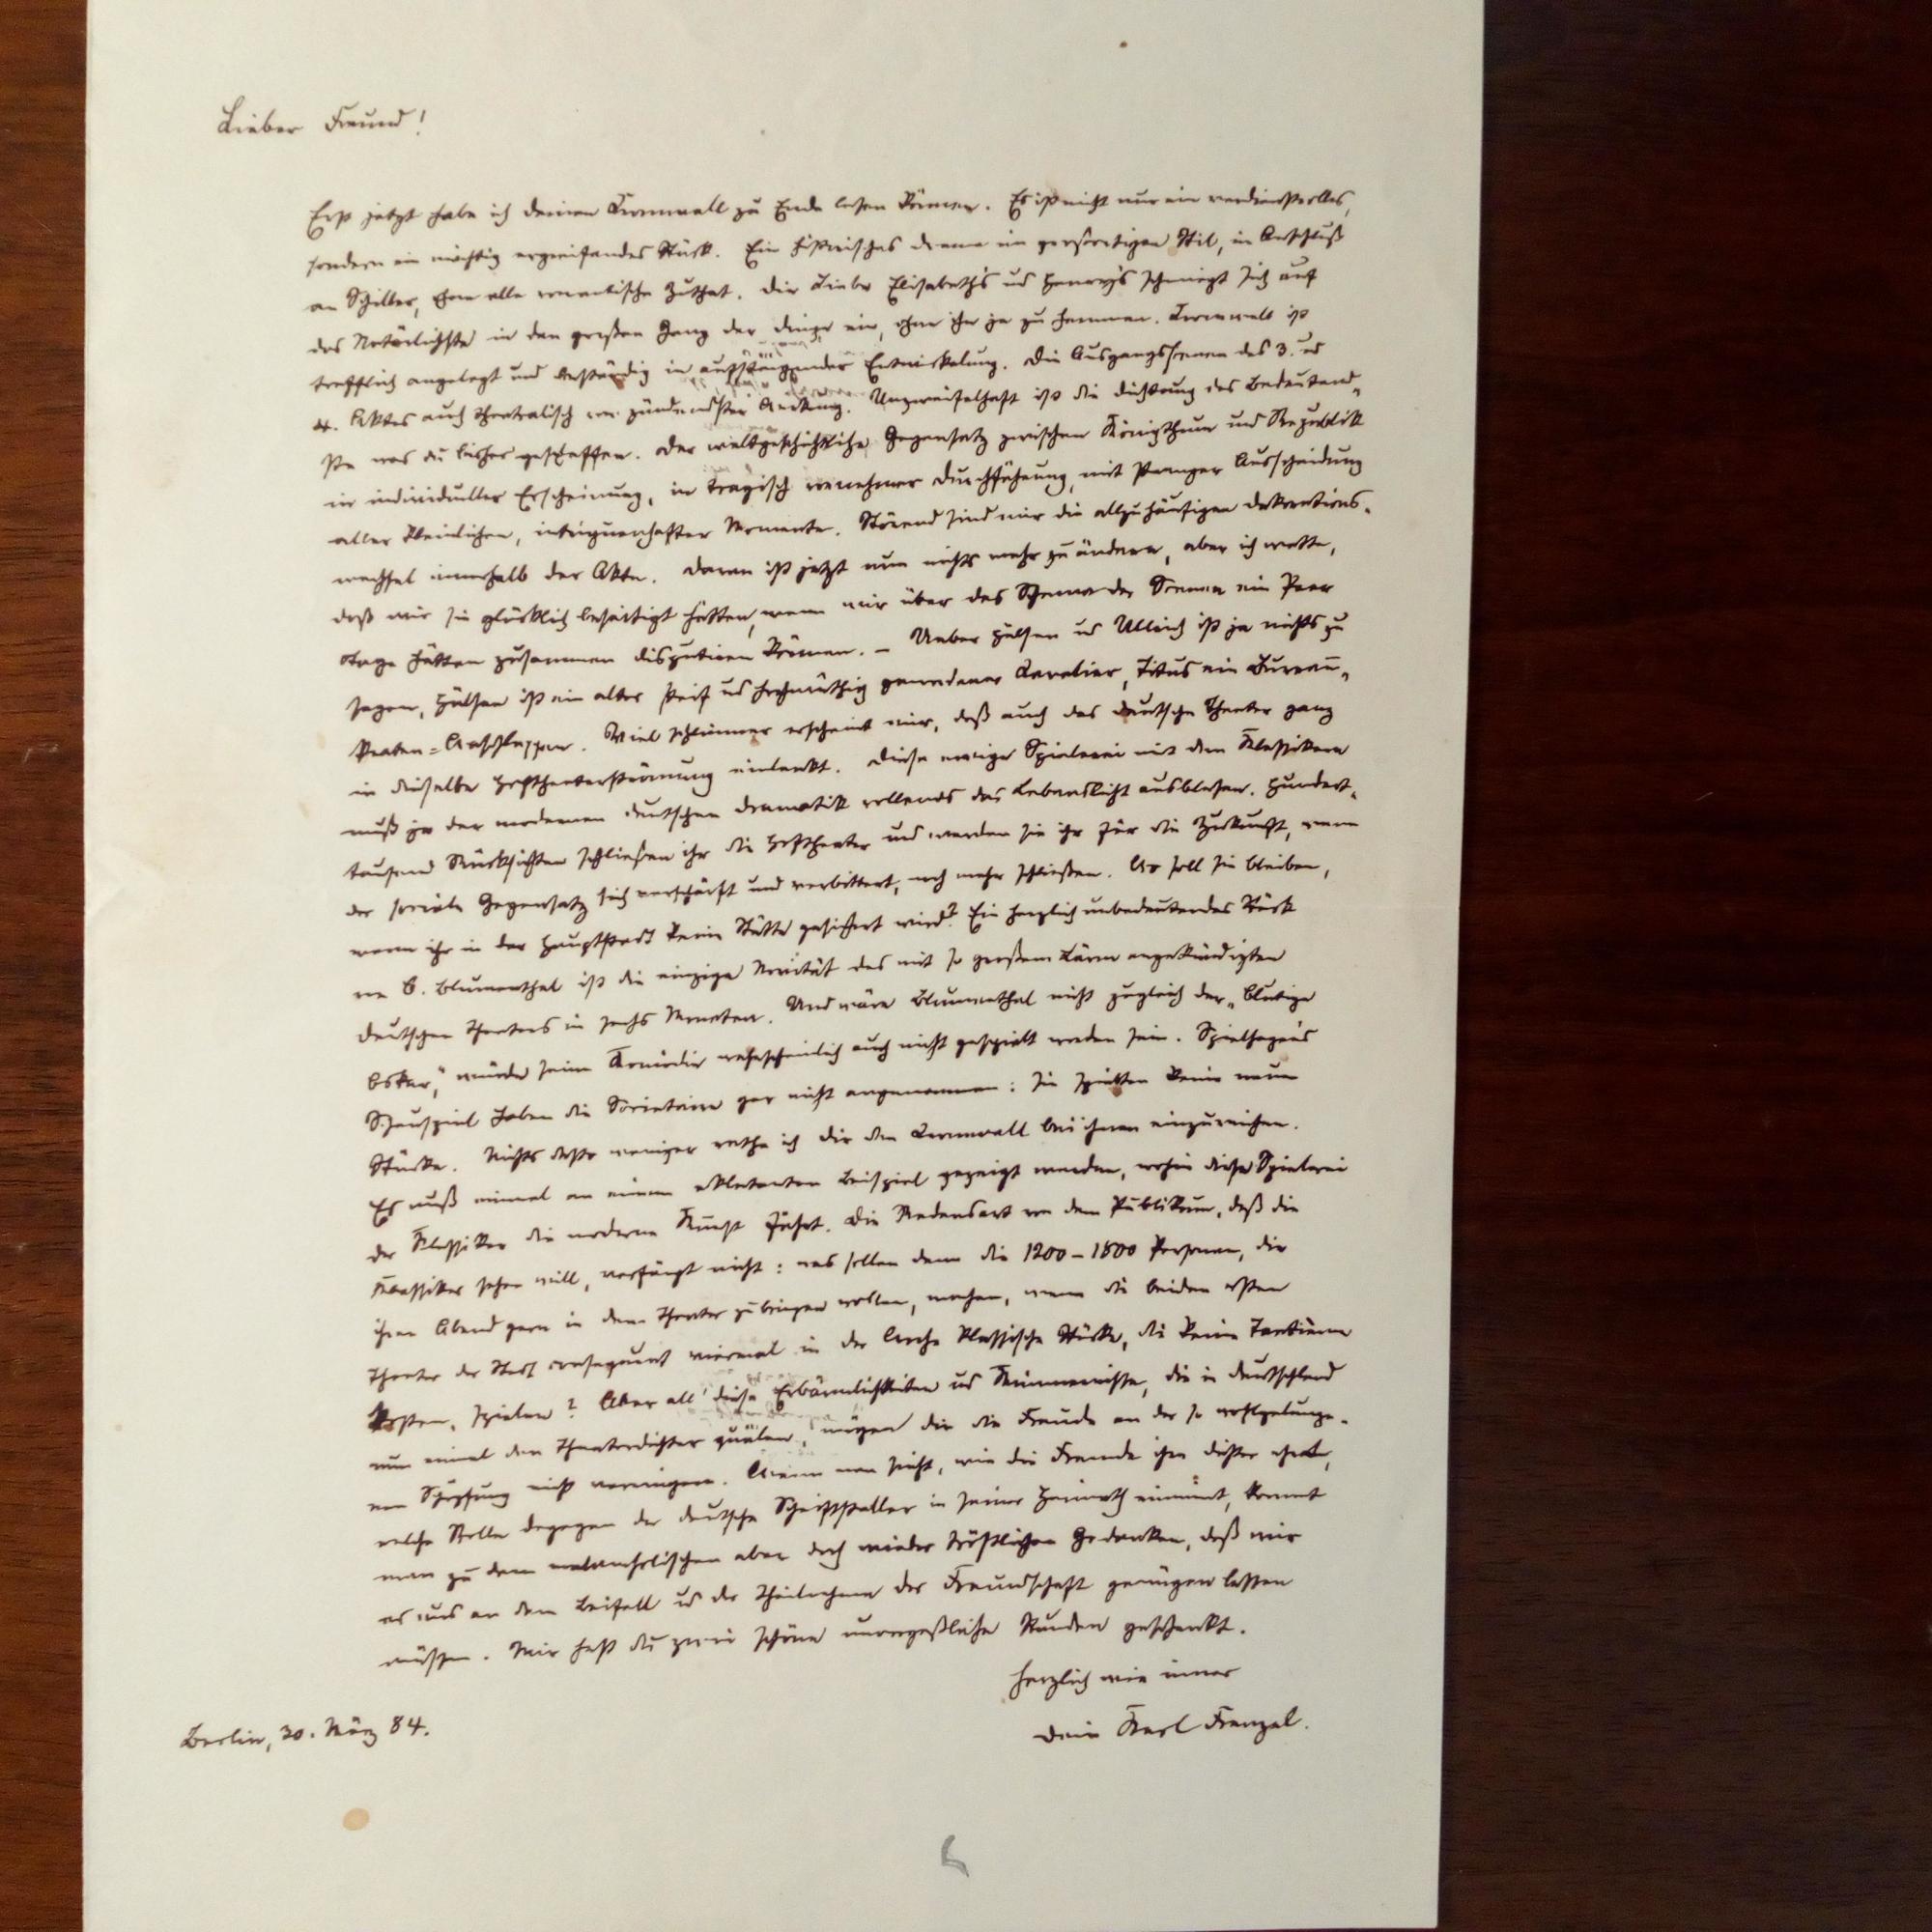 Lieber Freund!
Erst jetzt habe ich deinen Cromwell zu Ende lesen können. Es ist nicht nur ein verdienstvolles,
sondern ein mächtig ergreifendes Stück. Ein historisches Drama im großartigen Stil, im Anschluß
an Schiller, ohne alle romantische Zuthat. Die Liebe Elisabeth's und Henry's schmiegt sich auf
das Natürlichste in den großen Gang der Dinge ein, ohne ihn je zu hemmen. Cromwell ist
trefflich angelegt und beständig in aufsteigender Entwickelung. Die Ausgangsscenen des 3. und
4. Aktes auch theatralisch von zündendster Wirkung. Unzweifelhaft ist die Dichtung das Bedeutend-
ste was du bisher geschaffen. Der weltgeschichtliche Gegensatz zwischen Königthum und Republik
in individueller Erscheinung, in tragisch vornehmer Durchführung, mit strenger Ausscheidung
aller kleinlichen, intriguenhaften Momente. Störend sind mir die allzuhäufigen Dekorations-
wechsel innerhalb der Akte. Daran ist jetzt nun nichts mehr zu ändern, aber ich wette,
daß wir sie glücklich beseitigt hätten, wenn wir über das Schema der Scenen ein Paar
Tage hätten zusammen disputiren können. – Ueber Hülsen und Ullrich ist ja nichts zu
sagen, Hülsen ist ein alter steif und hochmüthig gewordener Cavalier, Titus ein Bureau-
kraten=Waschlappen. Viel schlimmer erscheint mir, daß auch das deutsche Theater ganz
in dieselbe Hoftheaterströmung einlenkt. Diese ewige Spielerei mit den Klassikern
muß ja der modernen deutschen Dramatik vollends das Lebenslicht ausblasen. Hundert-
tausend Rücksichten schließen ihr die Hoftheater und werden sie ihr für die Zukunft, wenn
der sociale Gegensatz sich verschärft und verbittert, noch mehr schließen. Wo soll sie bleiben,
wenn ihr in der Hauptstadt keine Stätte gesichert wird? Ein herzlich unbedeutendes Stück
von O. Blumenthal ist die einzige Novität des mit so großem Lärm angekündigten
deutschen Theaters in sechs Monaten. Und wäre Blumenthal nicht zugleich der „blutige
Oskar," würde seine Komödie wahrscheinlich auch nicht gespielt worden sein. Spielhagen's
Schauspiel haben die Societaire gar nicht angenommen: sie spielten keine neuen
Stücke. Nichts desto weniger rathe ich dir den Cromwell bei ihnen einzureichen.
Es muß einmal an einem eklatanten Beispiel gezeigt werden, wohin diese Spielerei
der Klassiker die moderne Kunst führt. Die Redensart von dem Publikum, daß die
Klassiker sehen will, verfängt nicht: was sollen denn die 1200–1500 Personen, die
ihren Abend gern in dem Theater zubringen wollen, machen, wenn die beiden ersten
Theater der Stadt consequent viermal in der Woche klassische Stücke, die keine Tantieme
kosten, spielen? Aber all' diese Erbärmlichkeiten und Kümmernisse, die in Deutschland
nun einmal den Theaterdichter quälen, mögen dir die Freude an der so wohlgelunge-
nen Schöpfung nicht verringern. Wenn man sieht, wie die Fremde ihre Dichter ehrt,
welche Stelle dagegen der deutsche Schriftsteller in seiner Heimath einnimt, kommt
man zu dem melancholischen aber doch wieder tröstlichen Gedanken, daß wir
es uns an dem Beifall und der Theilnahme der Freundschaft genügen lassen
müssen. Mir hast du zwei schöne unvergeßliche Stunden geschenkt.
Herzlich wie immer
Dein Karl Frenzel.
Berlin, 30. März 84.